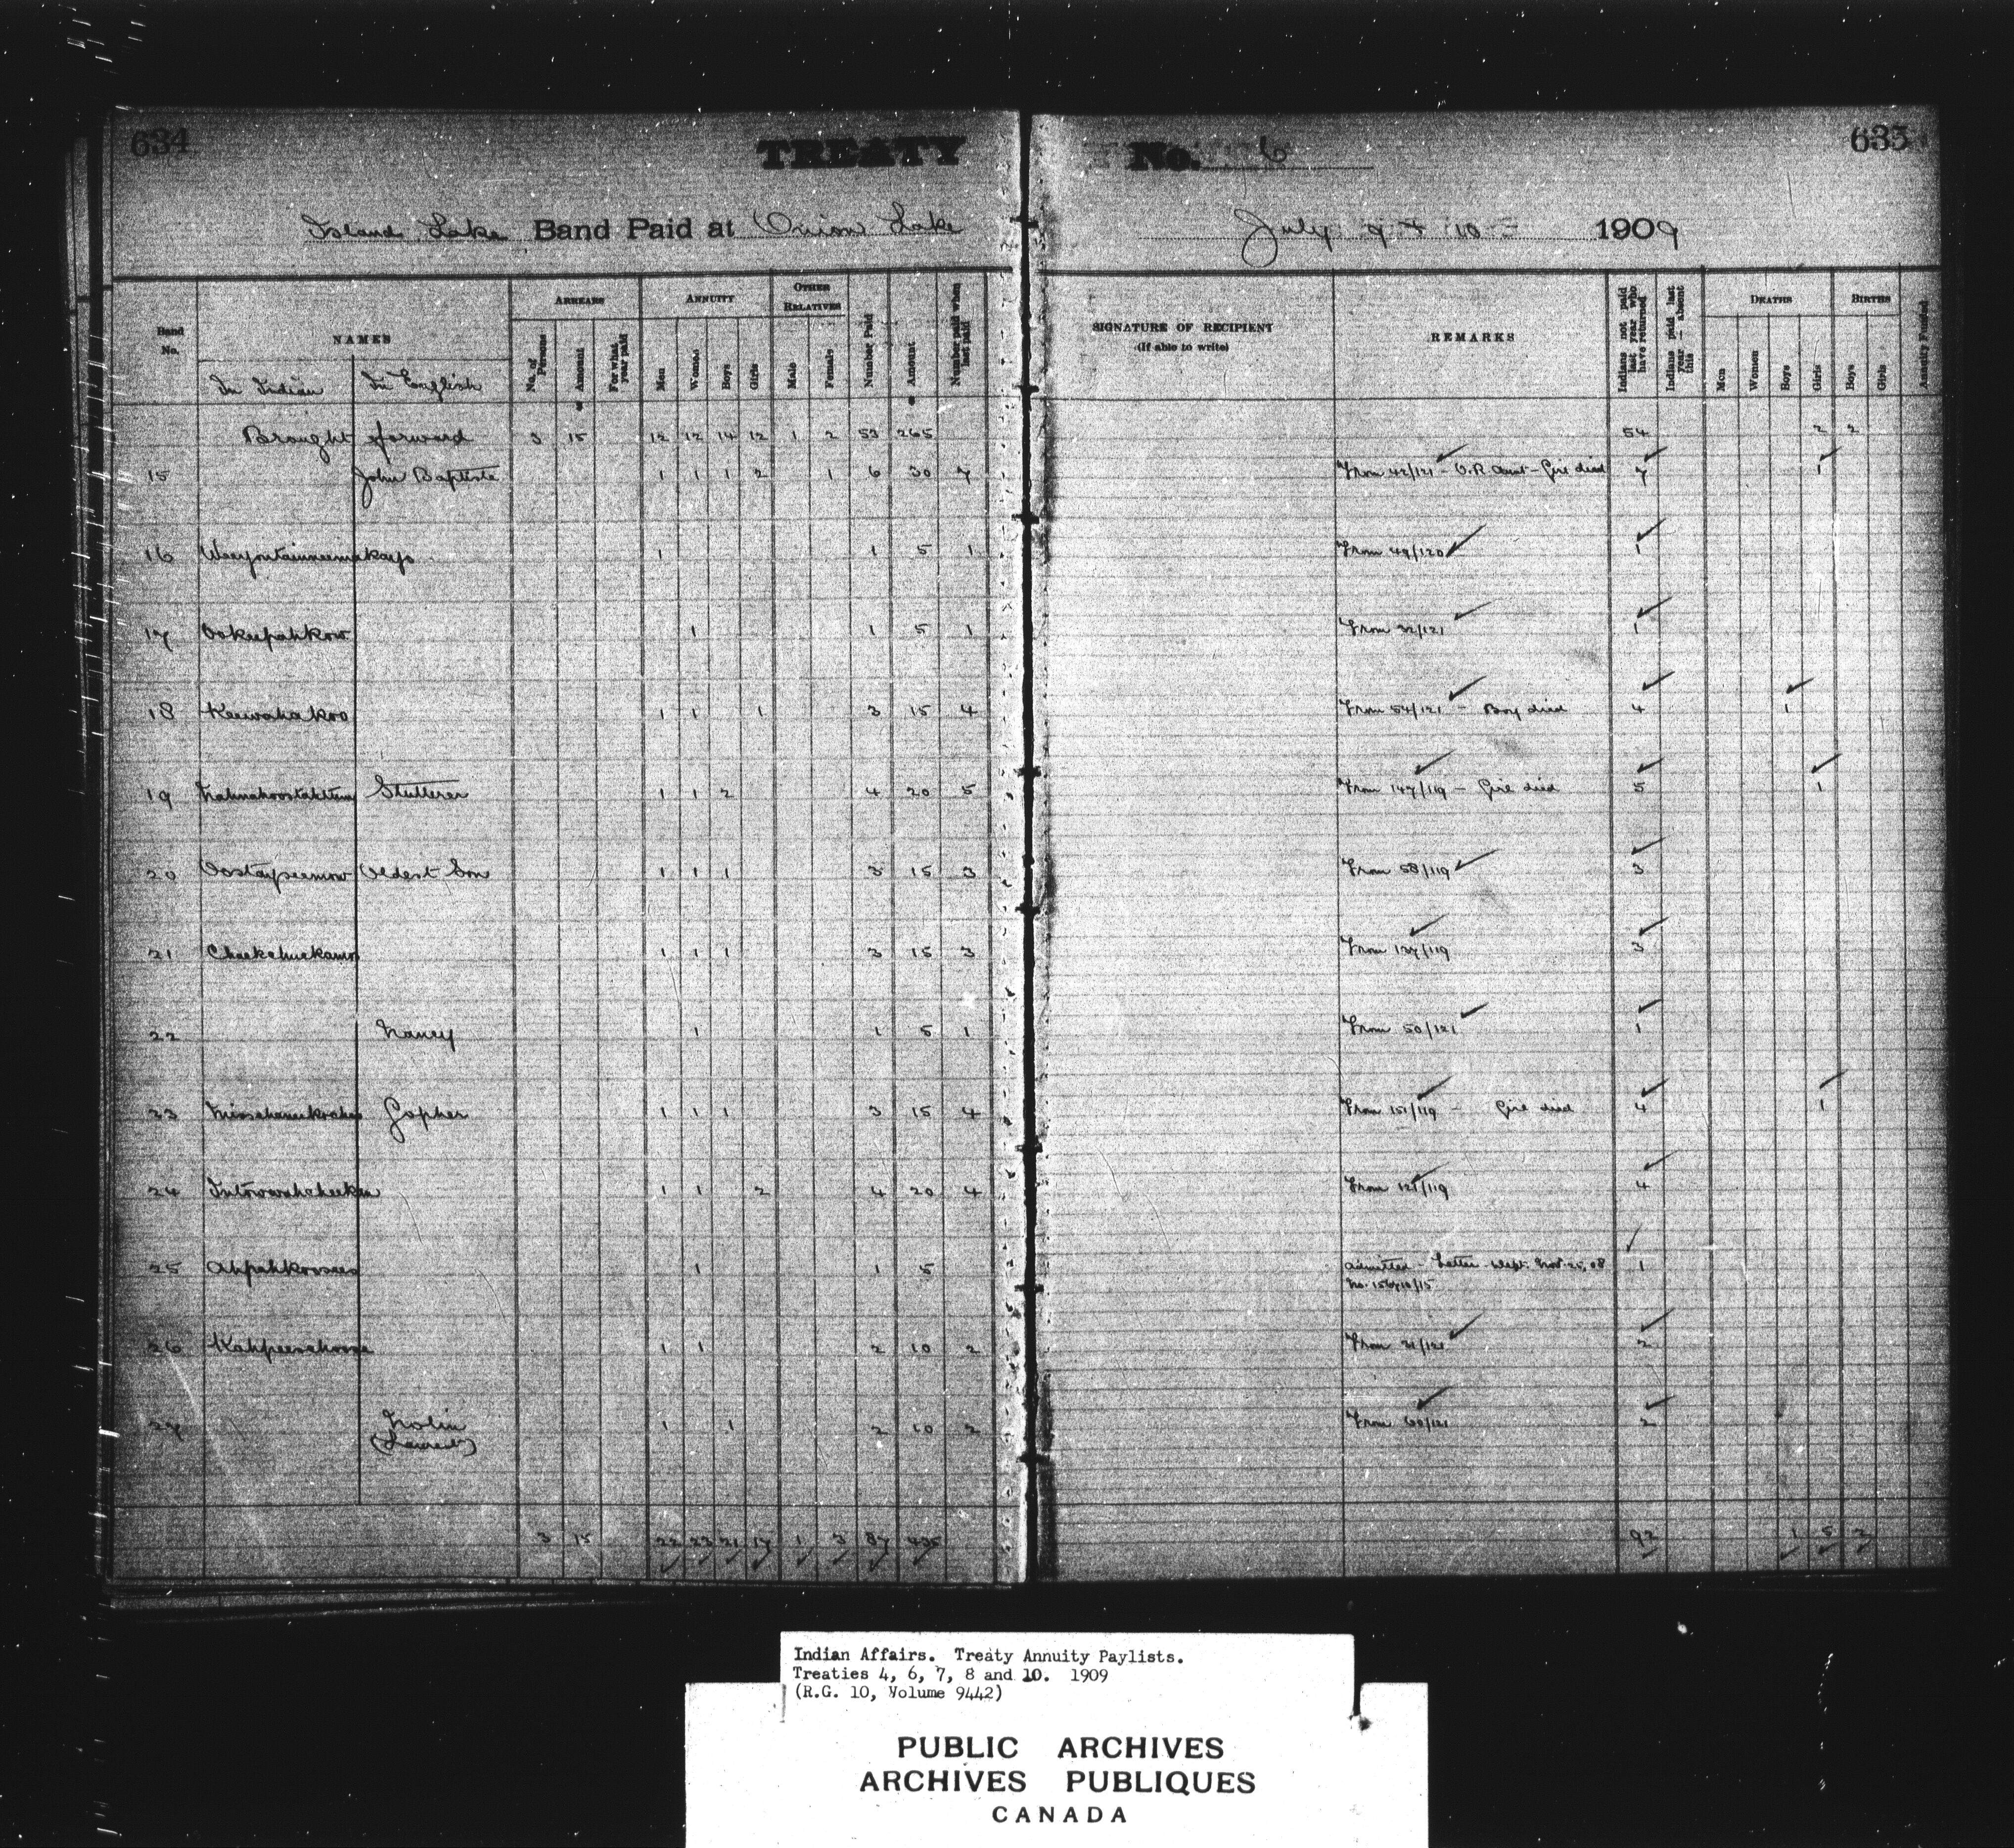 634
TREATY No. 6
635
Island Lake Band Paid at Onion Lake July 9 & 10 1909
Band No.
NAMES
In Indian In English
ARREARS
No. of Persons
Amount
For what year paid
ANNUITY
Men
Women
Boys
Girls
OTHER RELATIVES
Male
Female
Number Paid
Amount
Number paid when last paid
SIGNATURE OF RECIPIENT
(If able to write)
REMARKS
Indians not paid last year who have returned
Indians paid last year — absent this
DEATHS
Men
Women
Boys
Girls
BIRTHS
Boys
Girls
Annuity Funded
Brought forward 3 15 12 12 14 12 1 2 53 265 54 2 2
15 John Baptiste 1 1 1 2 1 6 30 7 From 42/121 - O.R. Aunt - Girl died 7 1
16 1 1 5 1 From 49/120 1
17 Ookeepahkow 1 1 5 1 From 32/121 1
18 Keewahakoo 1 1 1 3 15 4 From 54/121 - Boy died 4 1
19 Stutterer 1 1 2 4 20 5 From 147/119 - Girl died 5 1
20 Oostaypeemow Oldest Son 1 1 1 3 15 3 From 58/119 3
21 1 1 1 3 15 3 From 127/119 3
22 Nancy 1 1 5 1 From 50/121 1
23 Gopher 1 1 1 3 15 4 From 151/119 - Girl died 4 1
24 1 1 2 4 20 4 From 121/119 4
25 Ahpahkoosees 1 1 5 Admitted - Letter Dept. Nov. 25, 08 1
26 1 1 2 10 2 From 31/121 2
27 Nolin 1 1 2 10 2 From 60/121 2
(Laurent)
3 15 22 23 21 17 1 3 87 435 92 1 5 2
Indian Affairs. Treaty Annuity Paylists.
Treaties 4, 6, 7, 8 and 10. 1909
(R.G. 10, Volume 9442)
PUBLIC ARCHIVES
ARCHIVES PUBLIQUES
CANADA